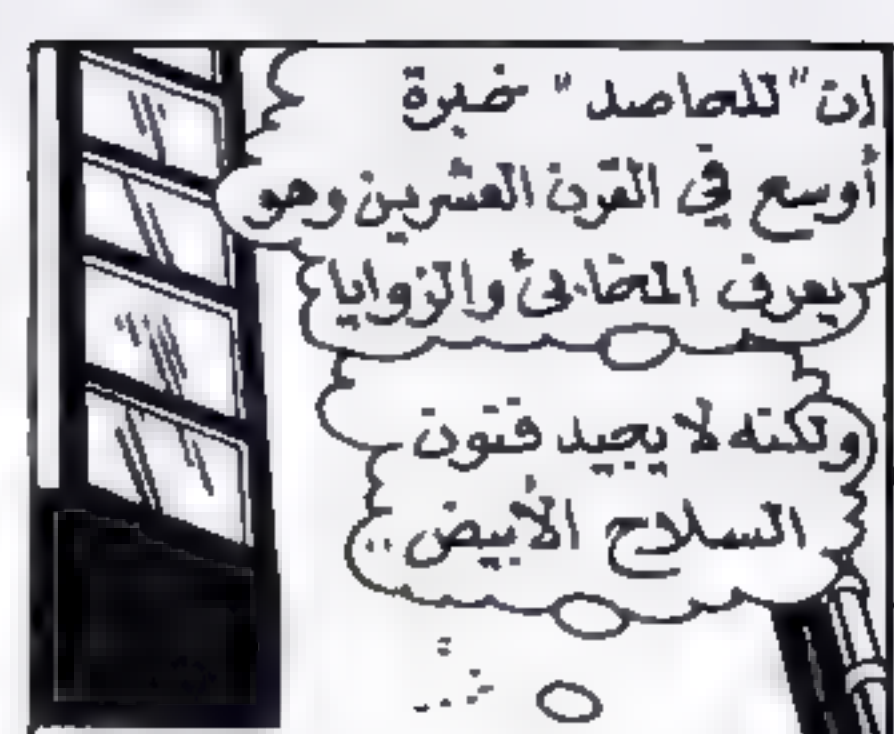 إن "للحاصد" خبرة
أوسع في القرن العشرين وهو
يعرف المخابئ والزوايا
ولكنه لا يجيد فنون
السلاح الأبيض ..